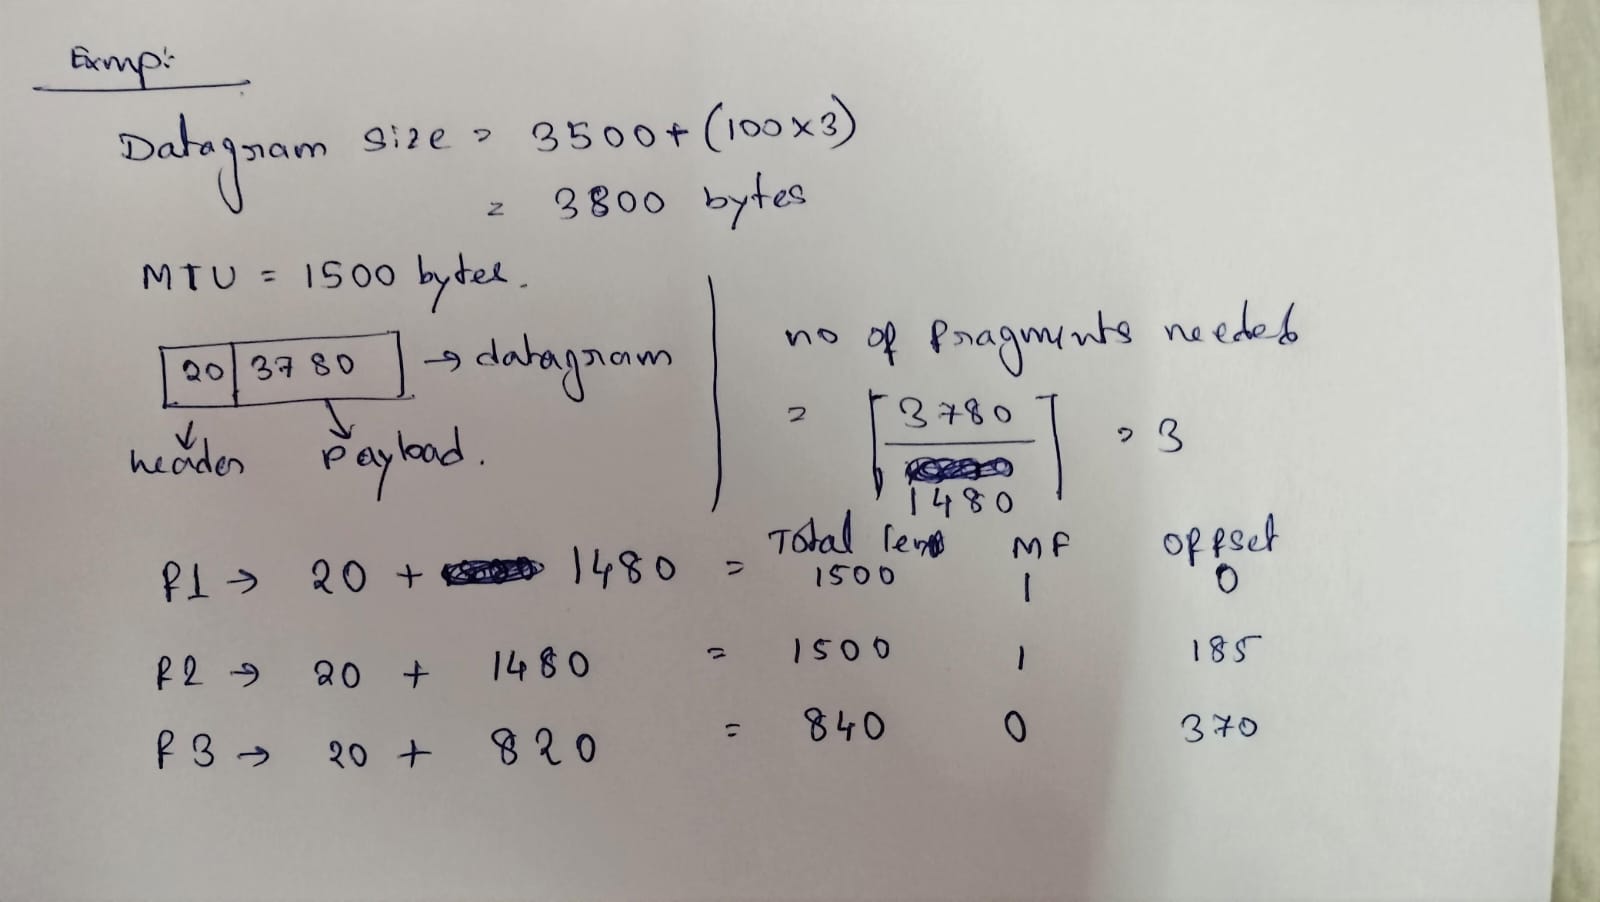 Exmp:
Datagram size = 3500 + (100×3)
= 3800 bytes
MTU = 1500 bytes.
20 | 3780 → datagram
header payload.
no of fragments needed
= ⌈3780 / 1480⌉ = 3
Total len MF offset
f1 → 20 + 1480 = 1500 1 0
f2 → 20 + 1480 = 1500 1 185
f3 → 20 + 820 = 840 0 370